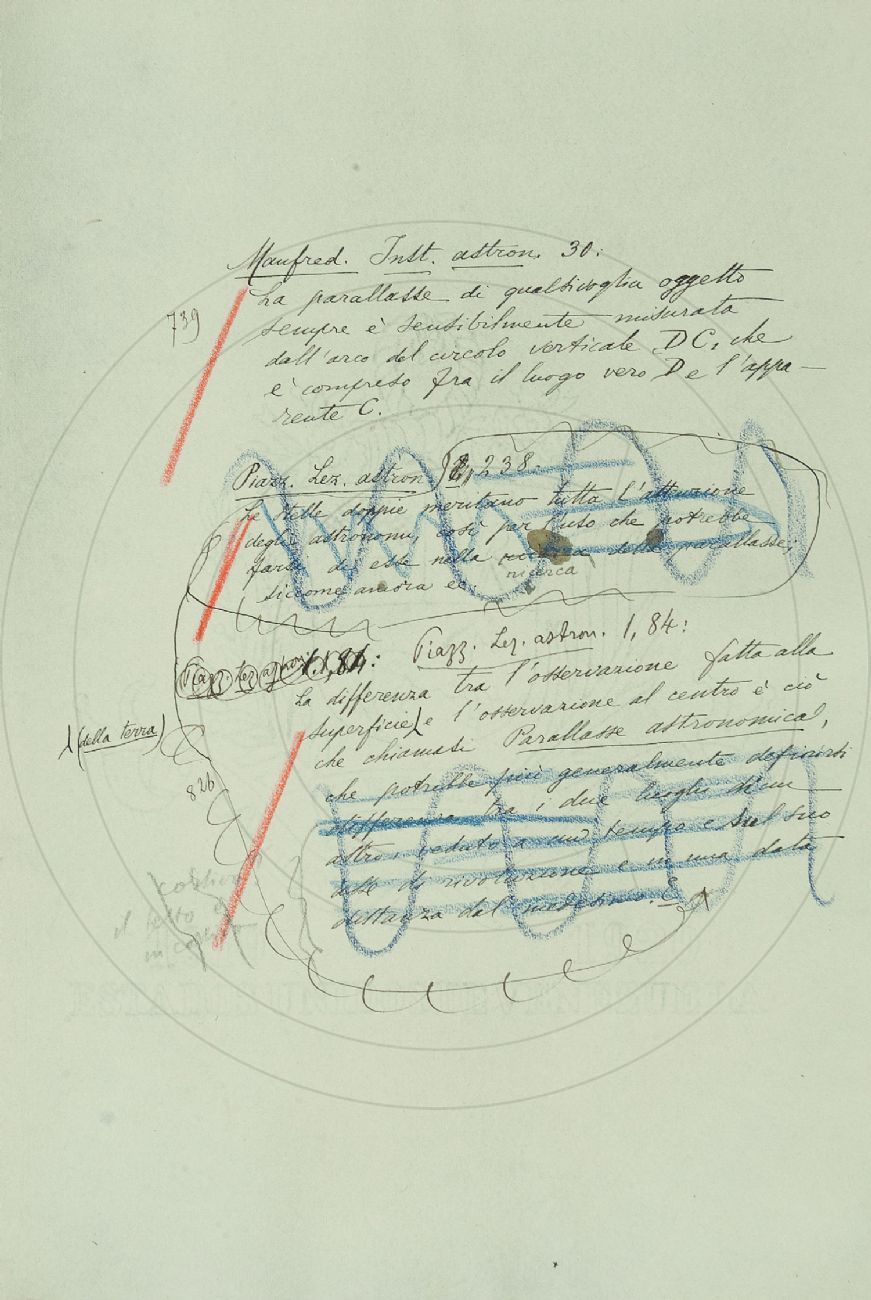 Manfred. Inst. astron. 30:
739
La parallasse di qualsivoglia oggetto
sempre è sensibilmente misurata
dall'arco del circolo verticale DC, che
è compreso fra il luogo vero D e l'appa-
rente C.
Piazz. Lez. astron. 2, 238.
Le stelle doppie meritano tutta l'attenzione
degli astronomi, così per l'uso che potrebbe
farsi di esse nella della parallasse;
ricerca
siccome ancora ec.
Piazz. Lez. astron. 1, 84:
Piazz. Lez. astron. 1, 84:
La differenza tra l'osservazione fatta alla
superficie e l'osservazione al centro è ciò
(della terra)
che chiamasi Parallasse astronomica,
826
che potrebbe più generalmente definirsi
differenza tra i due luoghi d'un
astro, veduto a un tempo e sul suo
asse di rivoluzione e in una data
distanza dal medesimo.
il testo è